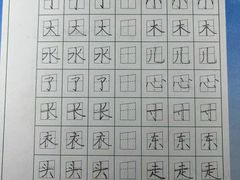 小 小 小
大 大 大 木 木 木
水 水 水 儿 儿 儿
了 了 了 心 心 心
长 长 长 寸 寸 寸
衣 衣 衣 东 东 东
头 头 头 走 走 走